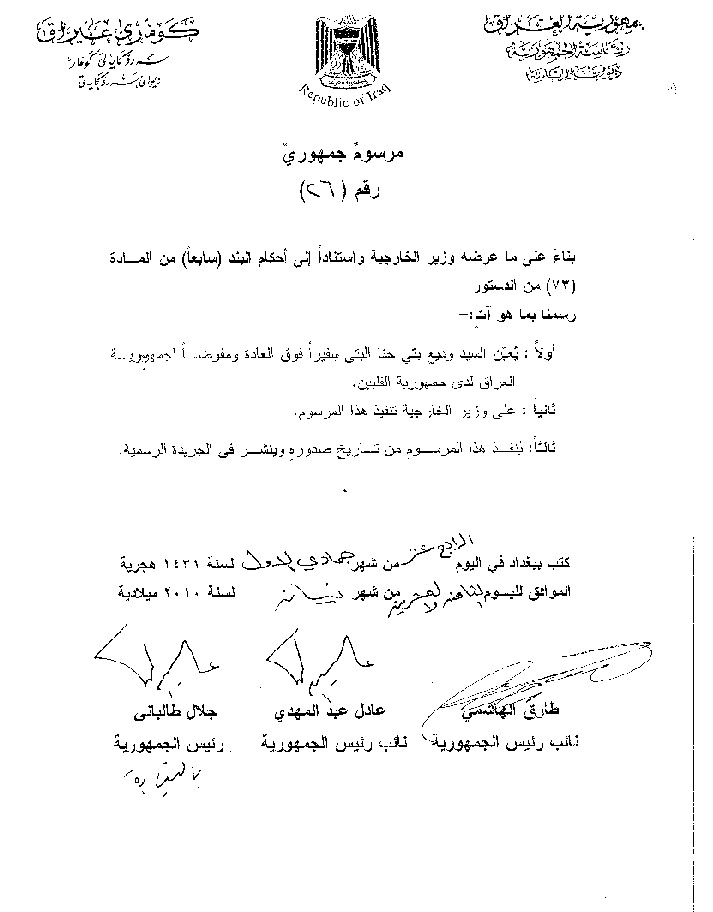 جمهورية العراق
رئاسة الجمهورية
كۆماری عێراق
سەرۆکایەتی کۆمار
دیوانی سەرۆکایەتی
Republic of Iraq
مرسومٌ جمهوريٌ
رقم (٢٦)
بناءً على ما عرضه وزير الخارجية واستناداً إلى أحكام البند (سابعاً) من المــادة
(٧٣) من الدستور
رسمنا بما هو آتٍ :-
أولاً : يُعيّن السيد وديع بتي حنا البتي سفيراً فوق العادة ومفوضــاً لجمهوريــة
العراق لدى جمهورية الفلبين.
ثانياً : على وزير الخارجية تنفيذ هذا المرسوم.
ثالثاً: يُنفــذ هذا المرســوم من تــاريخ صدوره وينشــر في الجريدة الرسمية.
كتب ببغداد في اليوم الرابع عشر من شهر جمادي الاول لسنة ١٤٣١ هجرية
الموافق لليــوم الثامن والعشرين من شهر نيسان لسنة ٢٠١٠ ميلادية
طارق الهاشمي
نائب رئيس الجمهورية
عادل عبد المهدي
نائب رئيس الجمهورية
جلال طالباني
رئيس الجمهورية